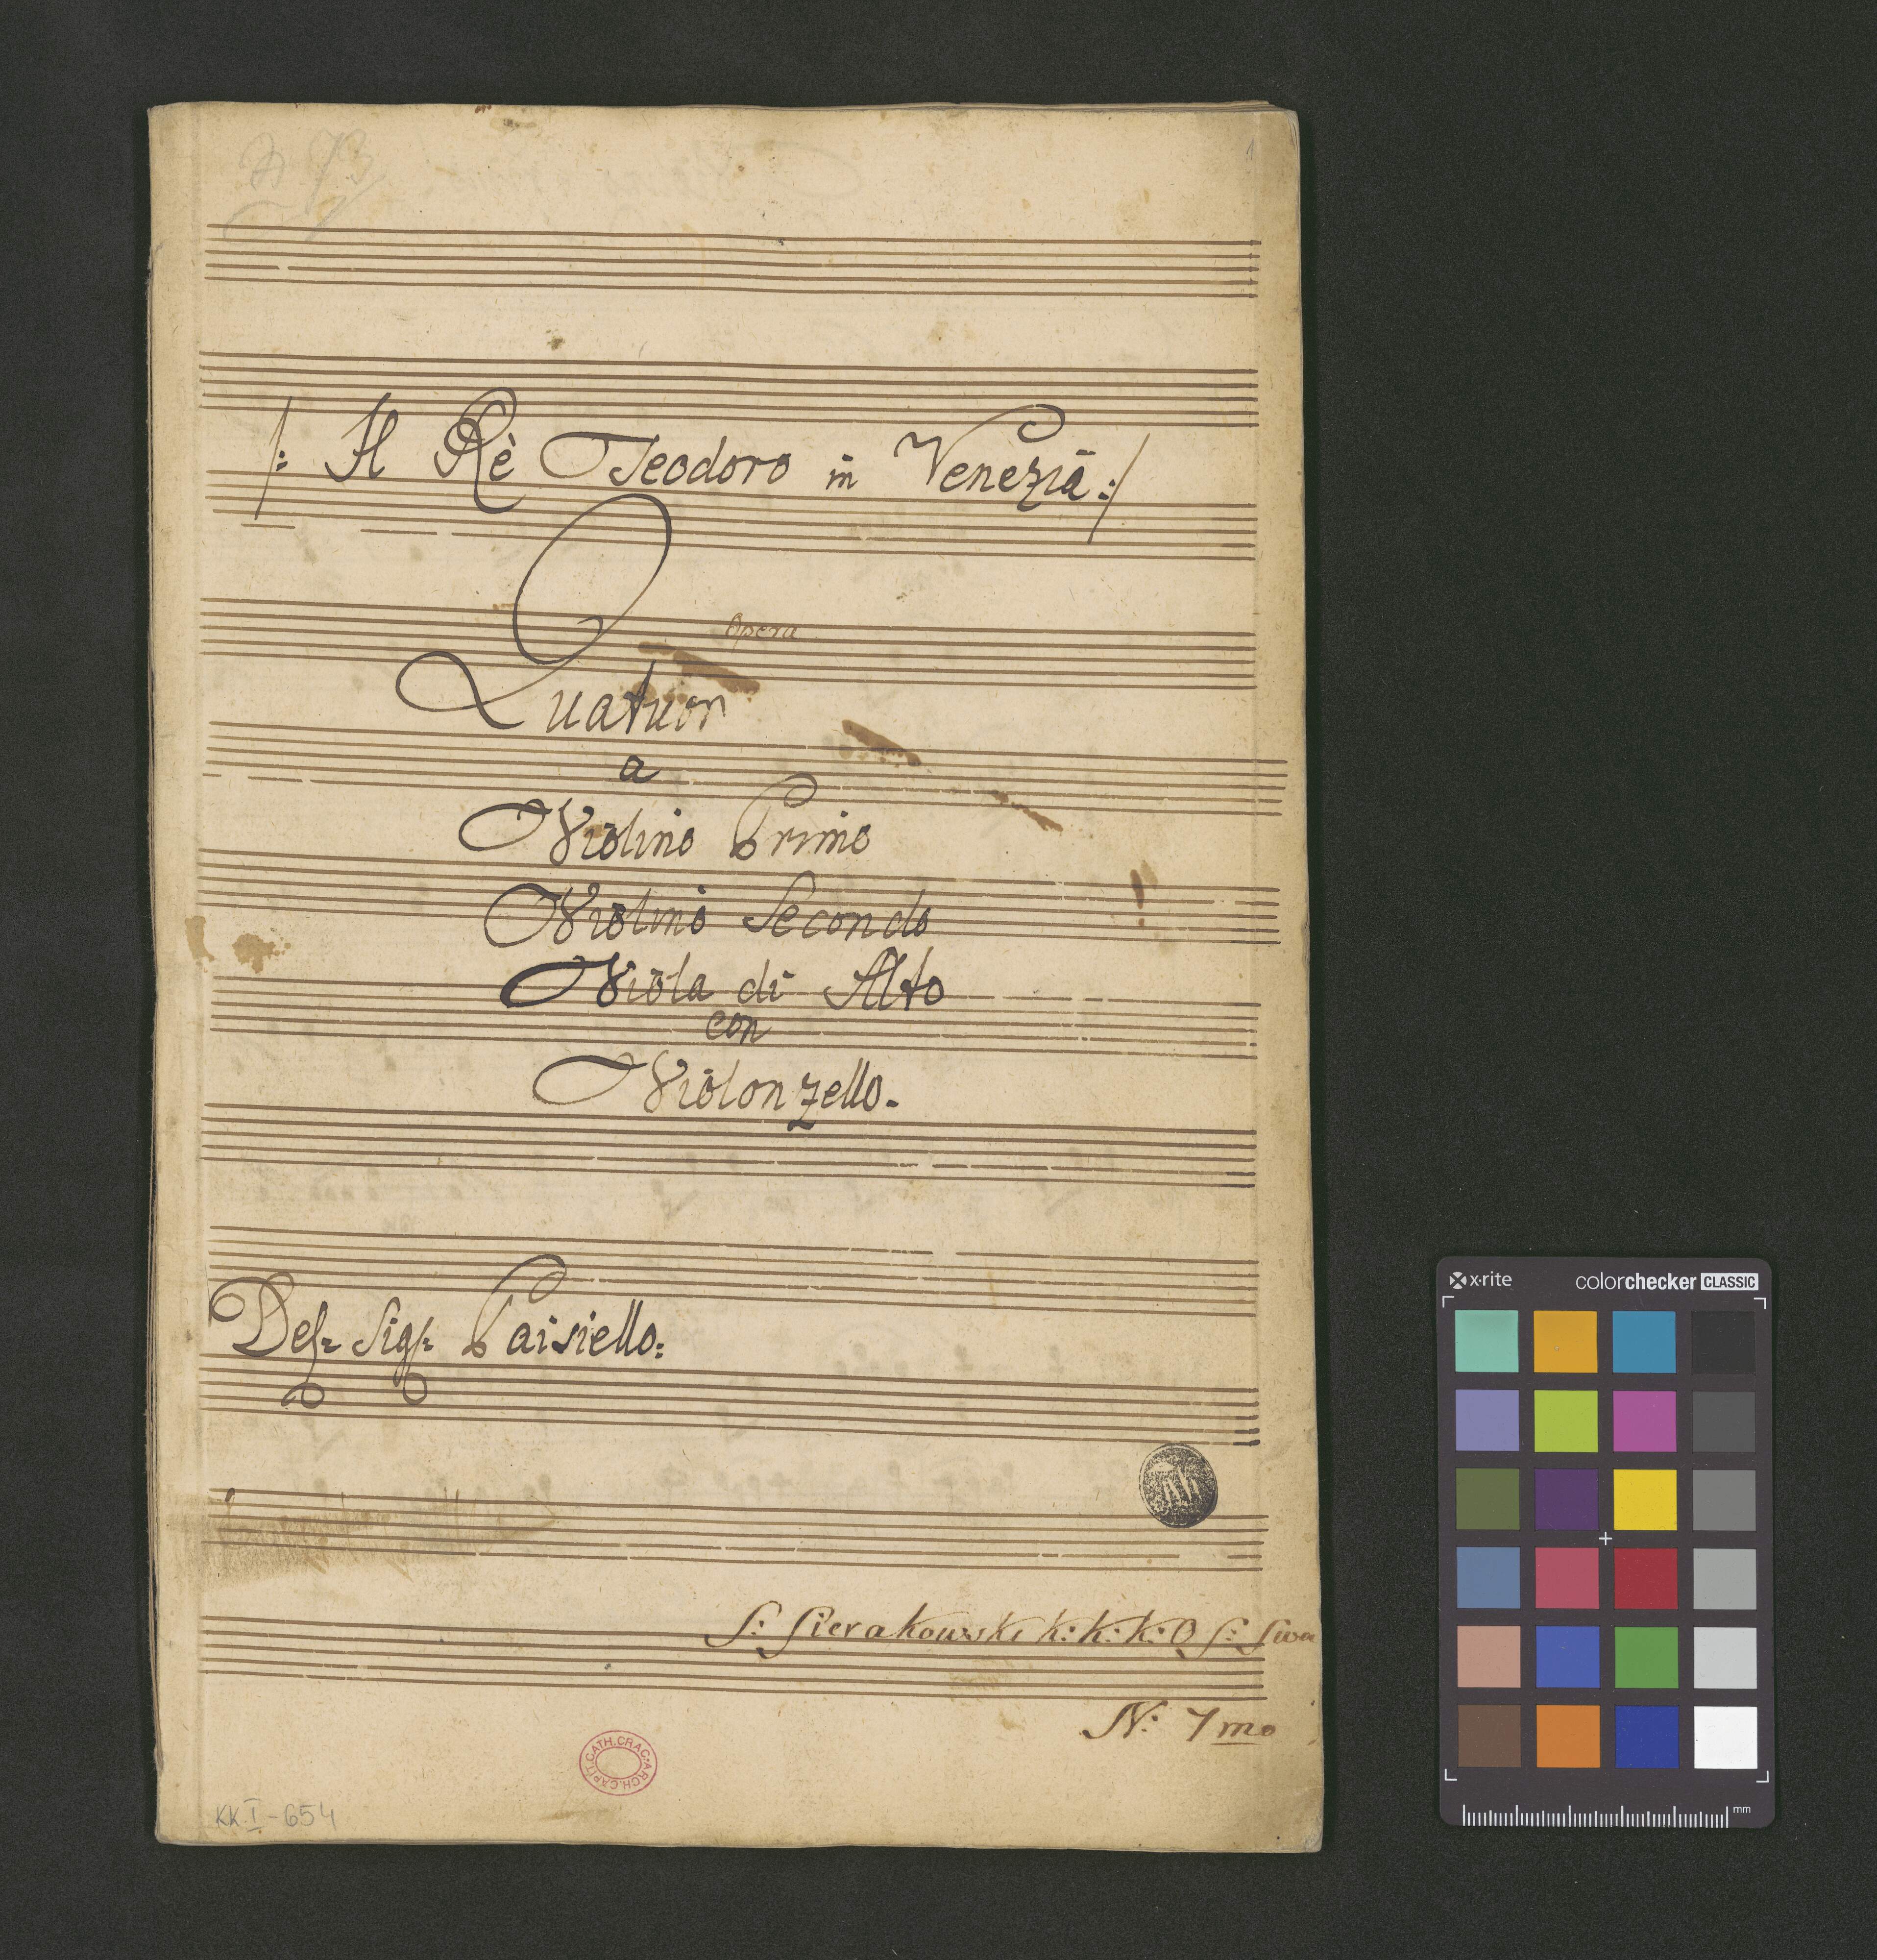 1
/: Il Rè Teodoro in Venezia :/
Opera
Quatuor
a
Violino Primo
Violino Secondo
Viola di Alto
con
Violonzello.
Del Sig Paisiello:
S: Sierakowski k: k: k: O S: Swa
N: 7mo
CATH. CRAC. ARCH. CAPIT.
KK. I - 654
x-rite colorchecker CLASSIC
mm